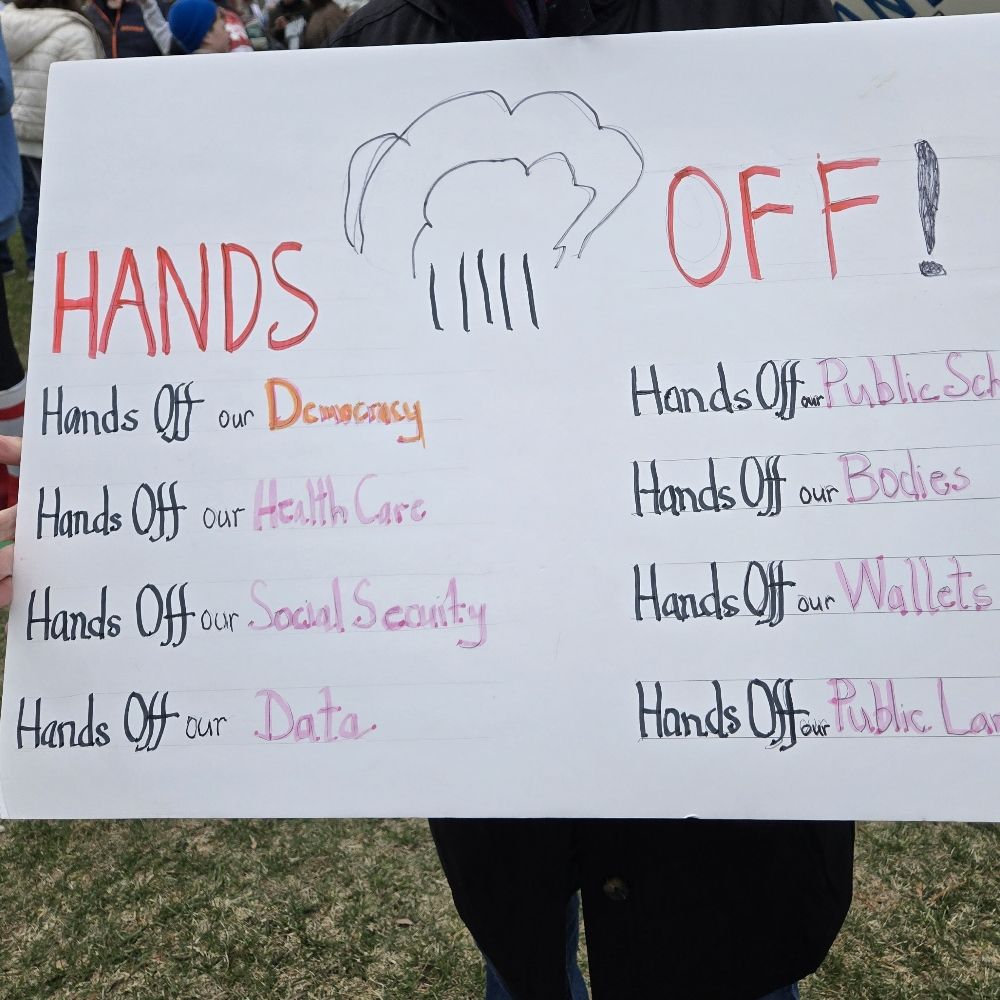 HANDS OFF!
Hands Off our Democracy
Hands Off our Health Care
Hands Off our Social Secuity
Hands Off our Data.
Hands Off our Public Sch
Hands Off our Bodies
Hands Off our Wallets
Hands Off our Public Lan